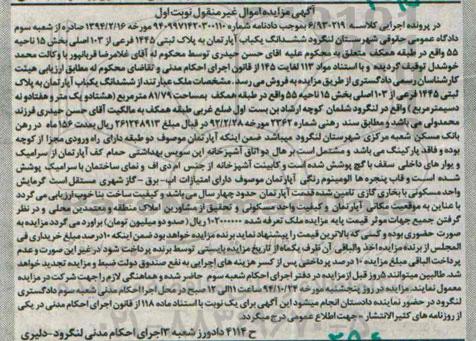 آگهی مزایده اموال غیر منقول نوبت اول
در پرونده اجرایی کلاسه ۹۳۰۲۱۹/۶ بموجب دادنامه شماره ۹۴۰۹۹۷۱۴۳۰۳۰۰۱۱۰ مورخه ۱۳۹۴/۲/۱۶ صادره از شعبه سوم
دادگاه عمومی حقوقی شهرستان لنگرود ششدانگ یکباب آپارتمان به پلاک ثبتی ۱۴۴۵ فرعی از ۱۰۳ اصلی بخش ۱۵ ناحیه
۵۵ واقع در طبقه همکف متعلق به محکوم علیه آقای حسن حیدری توسط محکوم له آقای غلامرضا قربانپور با وکالت محمد
خوشدل توقیف گردیده و با استناد مواد ۱۱۳ لغایت ۱۴۵ از قانون اجرای احکام مدنی و تقاضای محکوم له مطابق ارزیابی هیئت
کارشناسان رسمی دادگستری از طریق مزایده به فروش می رسد. مشخصات ملک عبارتند از ششدانگ یکباب آپارتمان به پلاک
ثبتی ۱۴۴۵ فرعی از ۱۰۳ اصلی بخش ۱۵ ناحیه ۵۵ واقع در طبقه همکف به مساحت ۸۱/۷۹ مترمربع (هشتاد و یک متر و هفتاد و نه
دسیمترمربع) واقع در لنگرود شلمان کوچه ارشاد بن بست اول ضلع غربی طبقه همکف به مالکیت آقای حسن حیدری فرزند
محمدولی می باشد و مطابق سند رهنی شماره ۳۳۶۲ مورخه ۹۲/۲/۲۸ در قبال مبلغ ۲۶۱۲۴۸۹۱۳ ریال بمدت ۱۵۶ ماه در رهن
بانک مسکن شعبه مرکزی شهرستان لنگرود میباشد ضمن اینکه آپارتمان موصوف دو طبقه دارای راه ورودی مجزا از کوچه
بوده و فاقد پارکینگ می باشد و مشتمل است بر هال دو اتاق آشپزخانه این سرویس بهداشتی حمام کف آپارتمان از سرامیک
و دیوار های داخلی سقف با گچ پوشش شده است و کابینت آشپزخانه از جنس ام دی اف و نمای ساختمان با سرامیک پوشش
شده است و قاب پنجره ها آلومینیوم رنگی آپارتمان موصوف دارای امتیازات آب - برق - گاز شهری مستقل است گرمایش
واحد مسکونی با بخاری گازی تامین شده قدمت آپارتمان حدود چهار سال می باشد و کیفیت ساخت بنا خوب ارزیابی می گردد
با عنایت به موقعیت مکانی آپارتمان و کیفیت واحد مسکونی و تحقیق از مشاورین املاک منطقه و معتمدین محلی و در نظر
گرفتن جمیع جهات موثر قیمت پایه مزایده ملک تعرفه شده ۱۰۲۰۰۰۰۰۰۰ ریال (صد و دو میلیون تومان) برآورد می گردد مزایده به
صورت حضوری بوده و کسی که بالاترین قیمت را پیشنهاد نماید برنده مزایده خواهد بود ضمن اینکه ۱۰ درصد مبلغ خریداری فی
المجلس از برنده مزایده اخذ و الباقی آن ظرف یکماه از تاریخ مزایده بایستی توسط برنده پرداخت شود در غیر این صورت و عدم
پرداخت الباقی مبلغ مزایده ۱۰ درصد پرداختی پس از کسر هزینه های اجرایی به نفع صندوق دولت ضبط و مزایده تجدید خواهد
شد. طالبین میتوانند ۵ روز قبل از مزایده در دفتر اجرای احکام شعبه سوم حاضر شده و هماهنگی لازم را جهت شرکت در مزایده
معمول نمایند. مزایده در روز پنجشنبه مورخه ۹۴/۱۰/۲۴ ساعت ۱۱ الی ۱۲ صبح در محل اجرا احکام مدنی شعبه سوم دادگستری
لنگرود در حضور نماینده دادستان انجام میشود این آگهی برای یک نوبت با استناد ماده ۱۱۸ از قانون اجرای احکام مدنی در یکی
از روزنامه های کثیرالانتشار - جهت اطلاع عمومی درج میگردد.
ح ۴۱۱۴ دادورز شعبه ۳ اجرای احکام مدنی لنگرود - دلیری